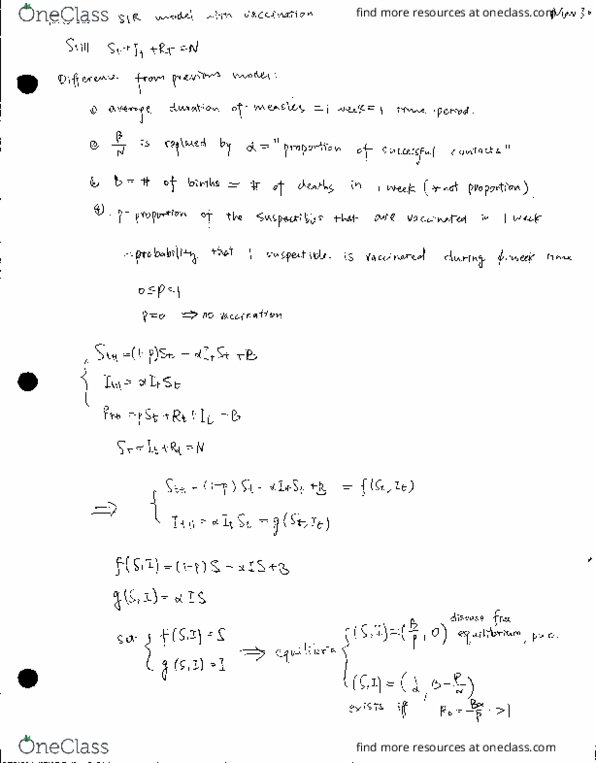 OneClass
find more resources at oneclass.com
SIR model with vaccination
Still St+It+RT=N
Difference from previous model:
① average duration of measles = 1 week = 1 time period.
② β/N is replaced by α = "proportion of successful contacts"
B = # of births = # of deaths in 1 week (not proportion)
4) p- proportion of the that are vaccinated in 1 week
probability that 1 is vaccinated during week time
0≤p<1
p=0 ⇒ no vaccination
St+1=(1-p)St - αItSt +B
It+1 = αItSt
= pSt + Rt + It - B
St+It+Rt=N
⇒ { (1-p)St - αItSt +B = f(St, It)
It+1 = αItSt = g(St, It)
f(S,I) = (1-p)S - αIS+B
g(S,I) = αIS
set { f(S,I)=S
g(S,I)=I
⇒ equilibria
(S,I)=(B/p, 0) disease free equilibrium, p>0.
(S,I) =
exists iff >1
OneClass
find more resources at oneclass.com